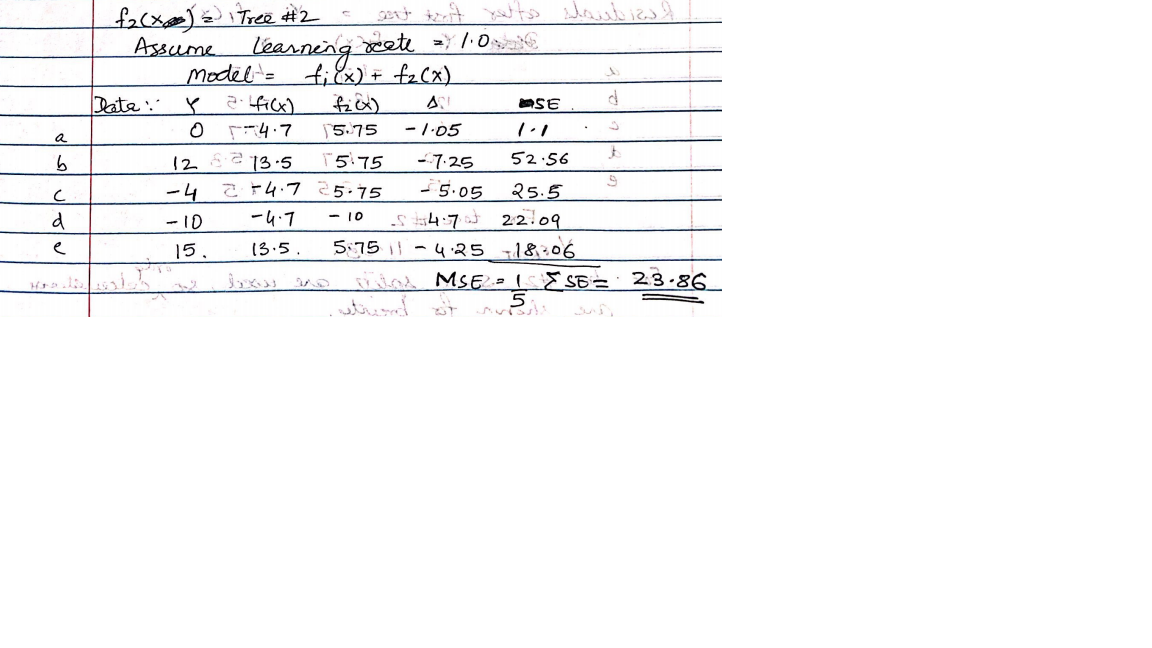 f₂(x) = Tree #2
Assume learning rate = 1.0
Model = f₁(x) + f₂(x)
Data:: Y f₁(x) f₂(x) Δ SE
a 0 -4.7 5.75 -1.05 1.1
b 12 13.5 5.75 -7.25 52.56
c -4 -4.7 5.75 -5.05 25.5
d -10 -4.7 -10 4.7 22.09
e 15. 13.5. 5.75 -4.25 18.06
MSE = 1/5 Σ SE = 23.86